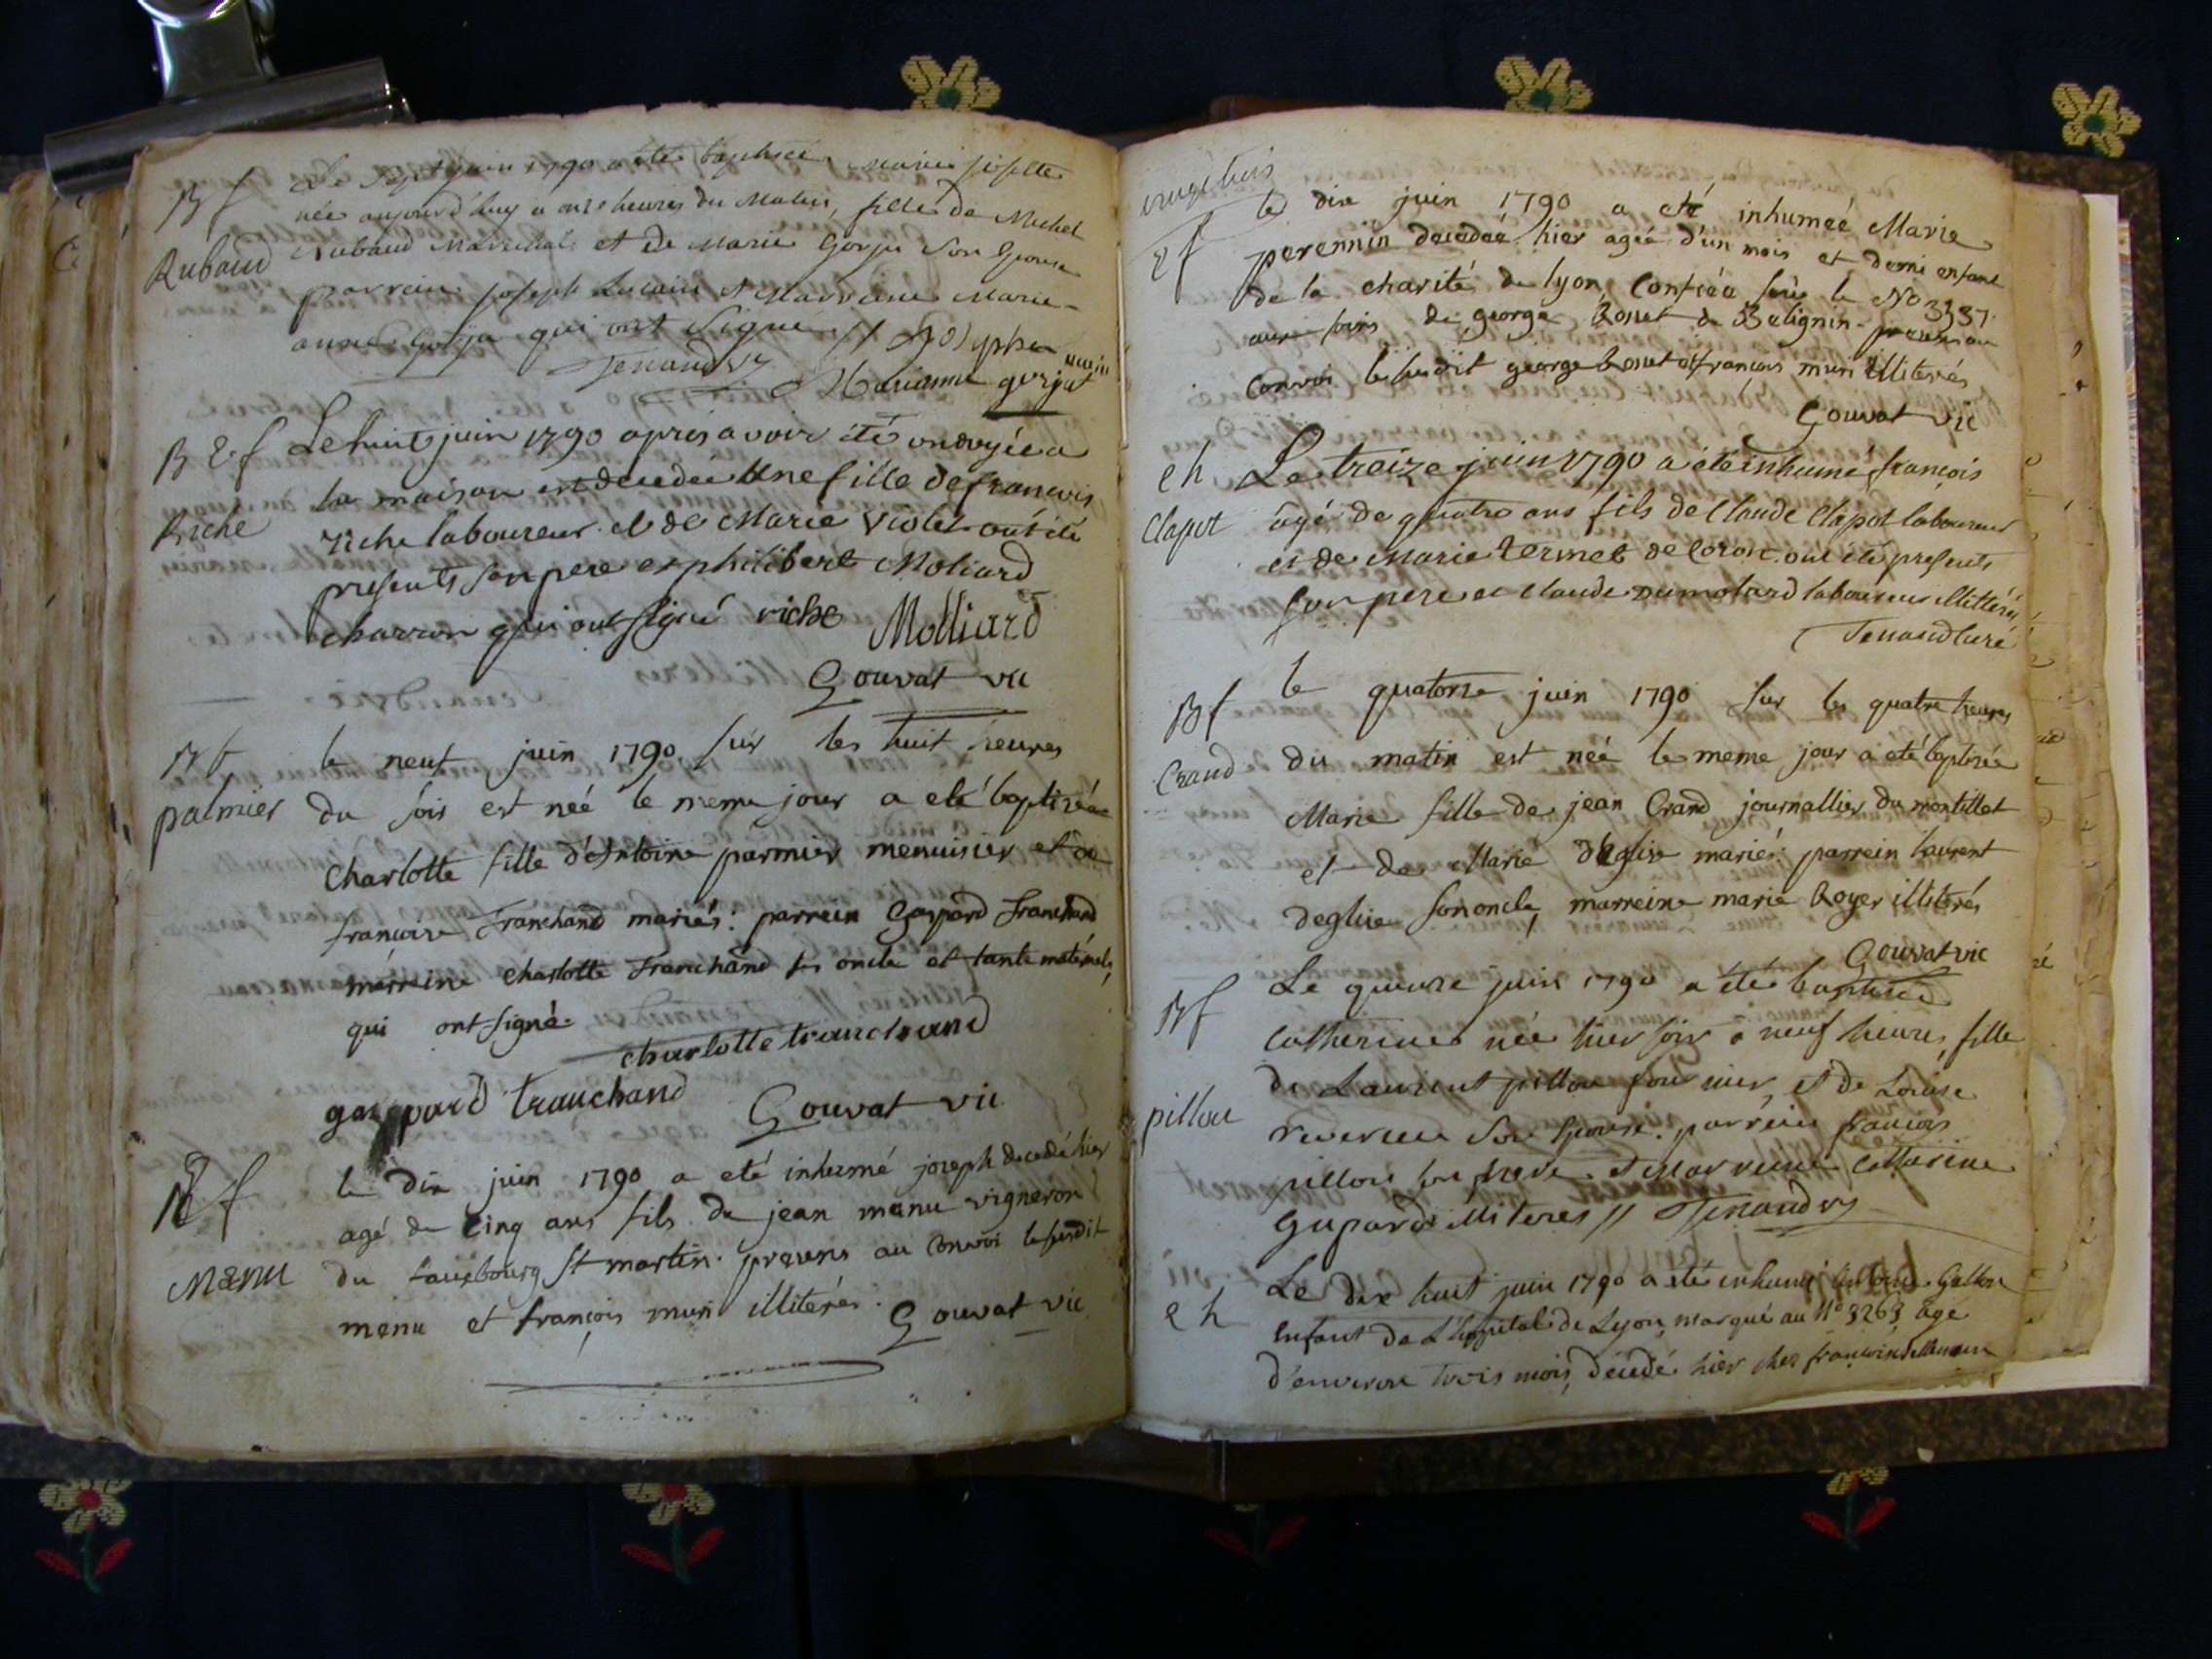 B f
Rubaud
Le Sept juin 1790 a été baptisée Marie josette
née aujourd'huy a onze heures du Matin, fille de Michel
Rubaud Maréchal et de Marie Gorju Son Epouse
parrain joseph Lucain et Marraine Marie
anne Gorju qui ont Signé //
Tenand vic
Marianne gorjut
B E f
Riche
Le huit juin 1790 apres avoir été ondoyée a
la maison est decedée Une fille de francois
riche laboureur et de Marie Violet ont été
presents son pere et philibert Moliard
charron qui ont signé riche Molliard
Gouvat vic
B f
palmier
le neuf juin 1790 sur les huit heures
du soir est née le meme jour a eté baptizée
Charlotte fille d'Antoine parmier menuisier et de
françoise Tranchand mariés: parrein Gaspard Tranchand
marreine charlotte Tranchand ses oncle et tante maternels
qui ont signé.
charlotte tranchand
gaspard tranchand Gouvat vic
E f
Menu
le dix juin 1790 a eté inhumé joseph decedé hier
agé de Cinq ans fils de jean menu vigneron
du fauxbourg St martin. presens au Convoi le susdit
menu et françois muri illiterés.
Gouvat vic
E f
le dix juin 1790 a eté inhumeé Marie
perennin decedeé hier ageé d'un mois et demi enfant
de la charité de lyon, Confiéa sous le No 3337.
aux soins de george Rosset de Balignin. presens au
Convoi le susdit george Rosset et francois muri illiterés
Gouvat vic
e h
Clapot
Le treize juin 1790 a été inhumé françois
âgé de quatre ans fils de Claude Clapot laboureur
et de Marie Vermet de Coron. ont été presents
son pere et Claude Dumolard laboureurs illittérés
Tenand curé
B f
Crand
le quatorze juin 1790 sur les quatre heures
du matin est neé le meme jour a eté baptisée
Marie fille de jean Crand journallier du montillet
et de Marie d'Eglise mariés: parrein laurent
deglise son oncle, marreine marie Royer illiterés
Gouvat vic
B f
pillou
Le quinze juin 1790 a été baptisée
Catherine née hier soir a neuf heures, fille
de Laurent pillou fournier, et de Louise
son Epouse. parrein françois
pillou son frere et Marreine Catherine
Gapard illiteres // Tenand vic
e h
Le dix huit juin 1790 a été inhumé Gallon
Enfant de L'hopital de Lyon, marqué au N° 3263 agé
d'environ trois mois, décédé hier chez françois